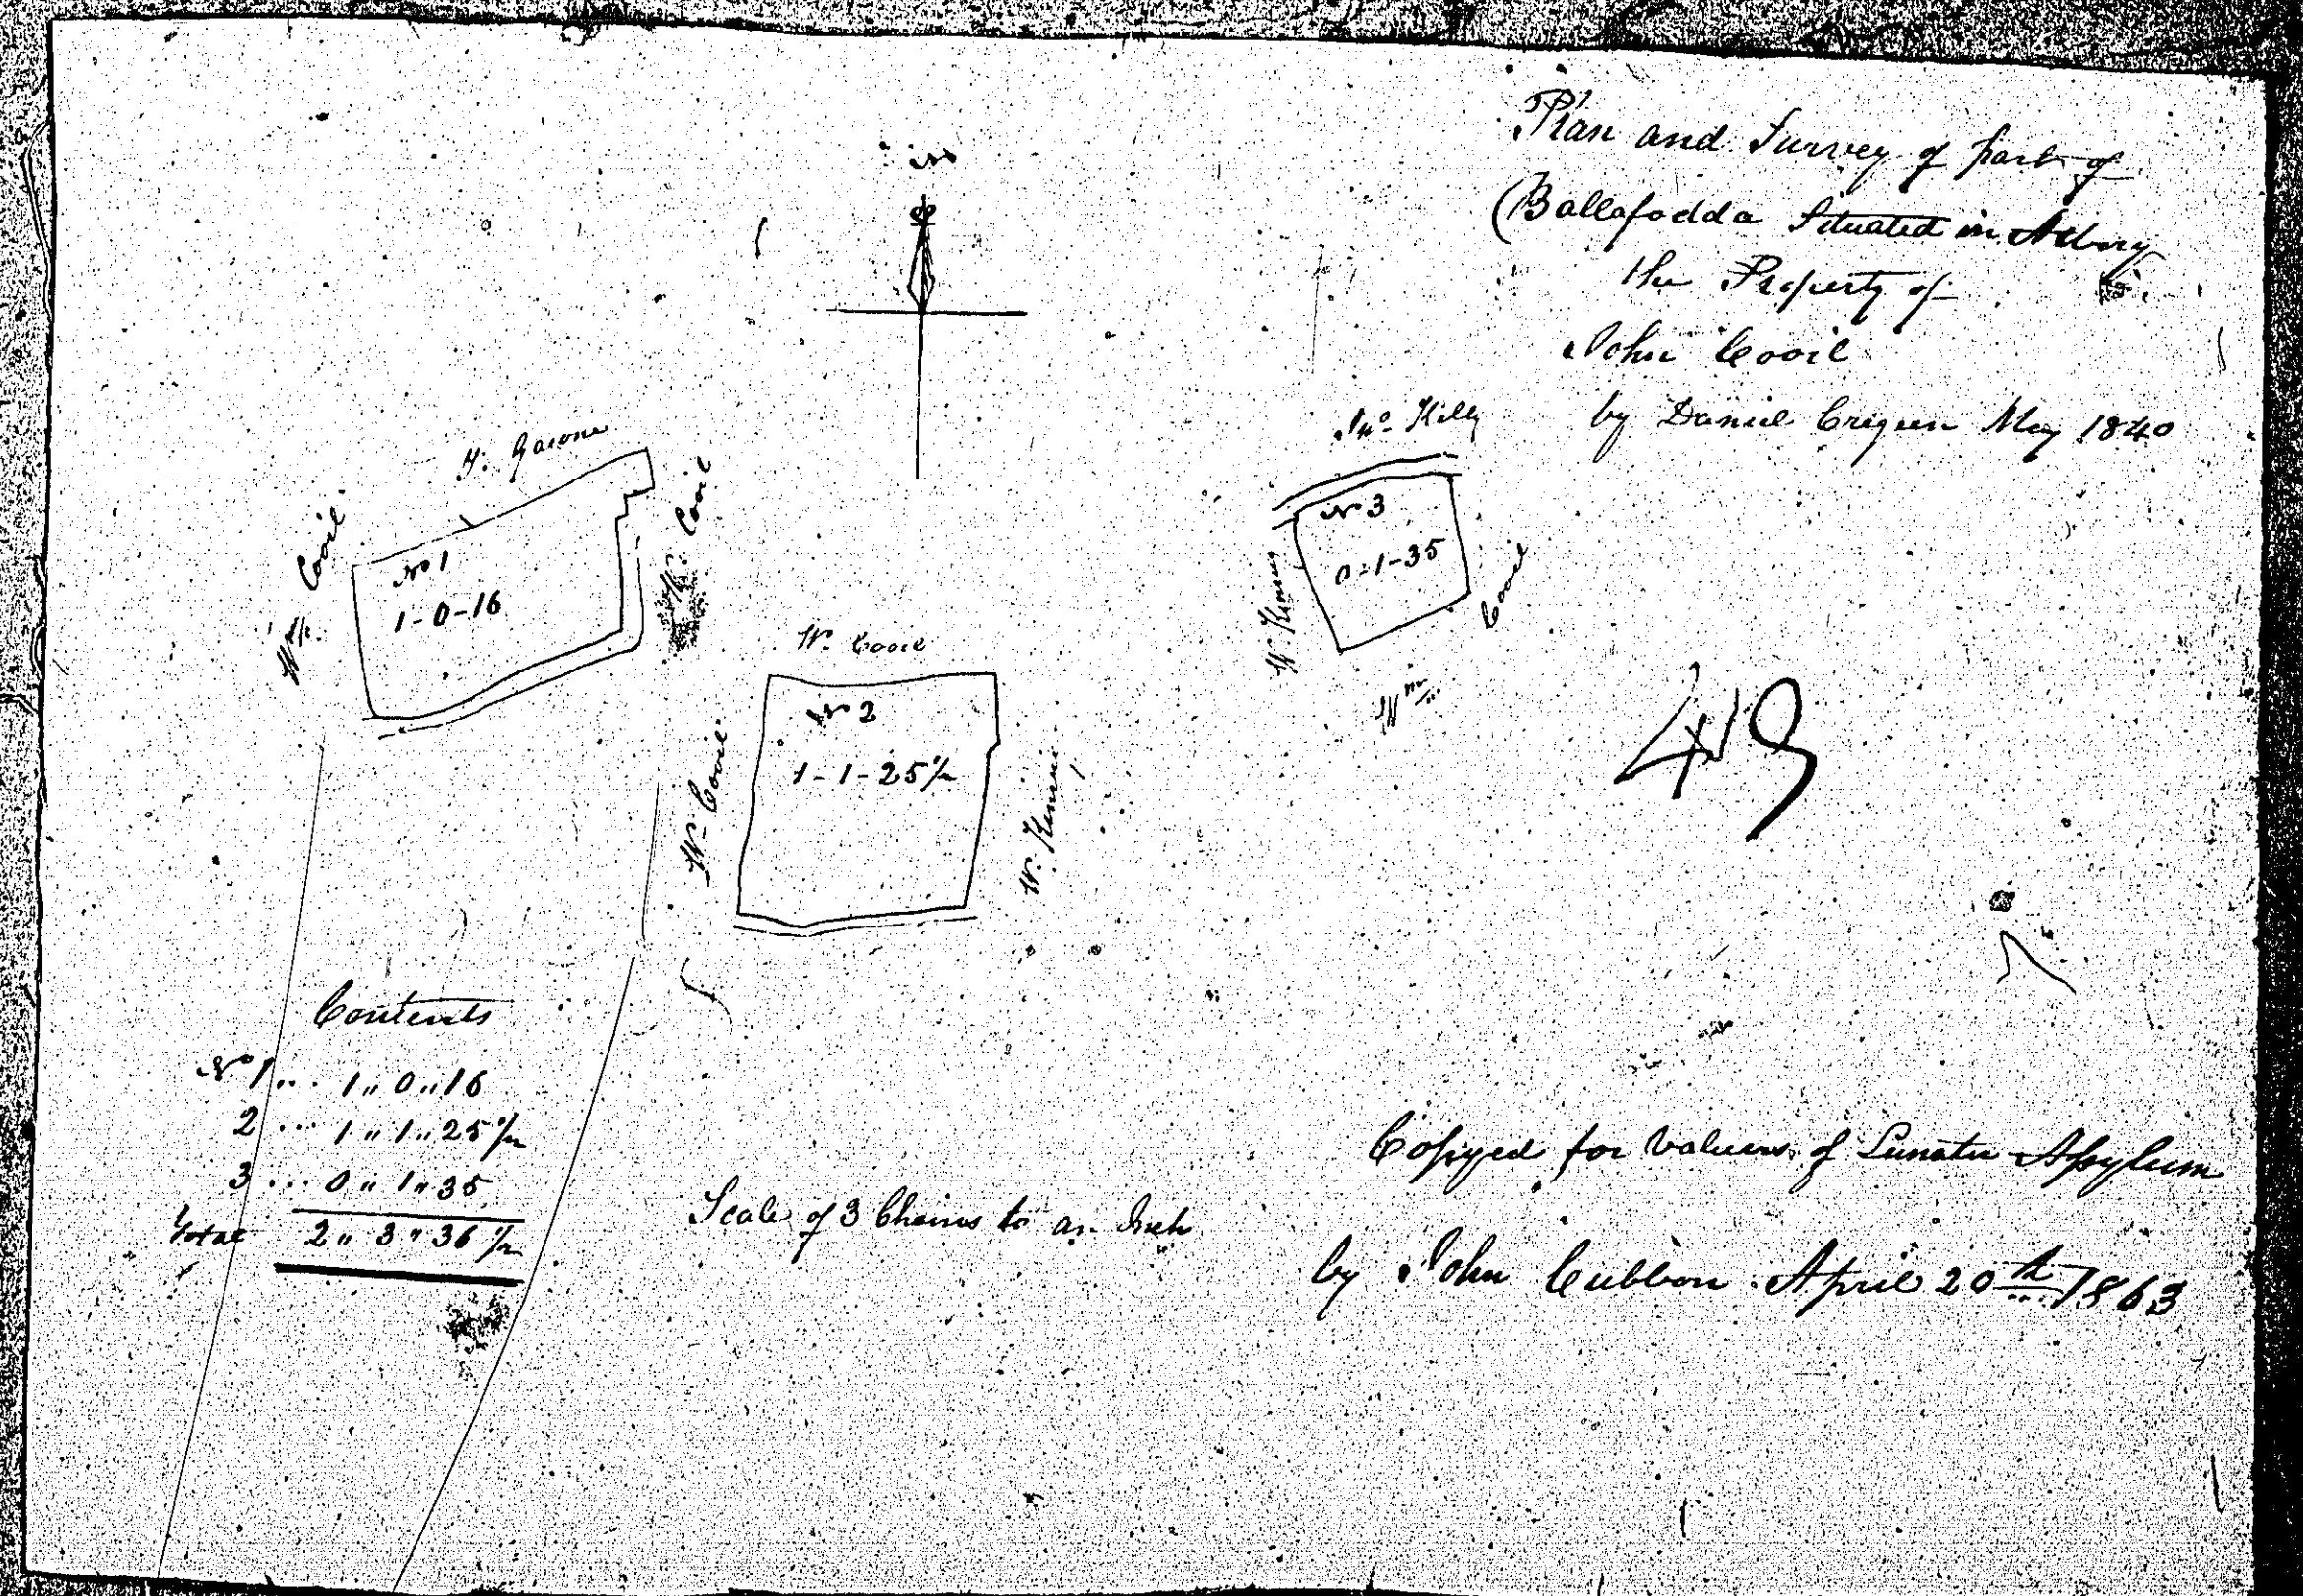 N
Plan and Survey of part of
Ballafodda Situated in Arbory
the Property of
John Cooil
by Daniel Creguen May 1840
Jno Killy
Wm Cooil
W. Cooil
No 1
1-0-16
W. Cooil
W. Cooil
No 2
1-1-25 1/2
W. Kinnie
No 3
0-1-35
W. Kinnie
Wm Cooil
Contents
No 1 ... 1 " 0 " 16
2 ... 1 " 1 " 25 1/2
3 ... 0 " 1 " 35
Total 2 " 3 " 36 1/2
Scale of 3 Chains to an Inch
Copyed for Valuers of Lunatic Assylum
by John Cubbon April 20th 1863